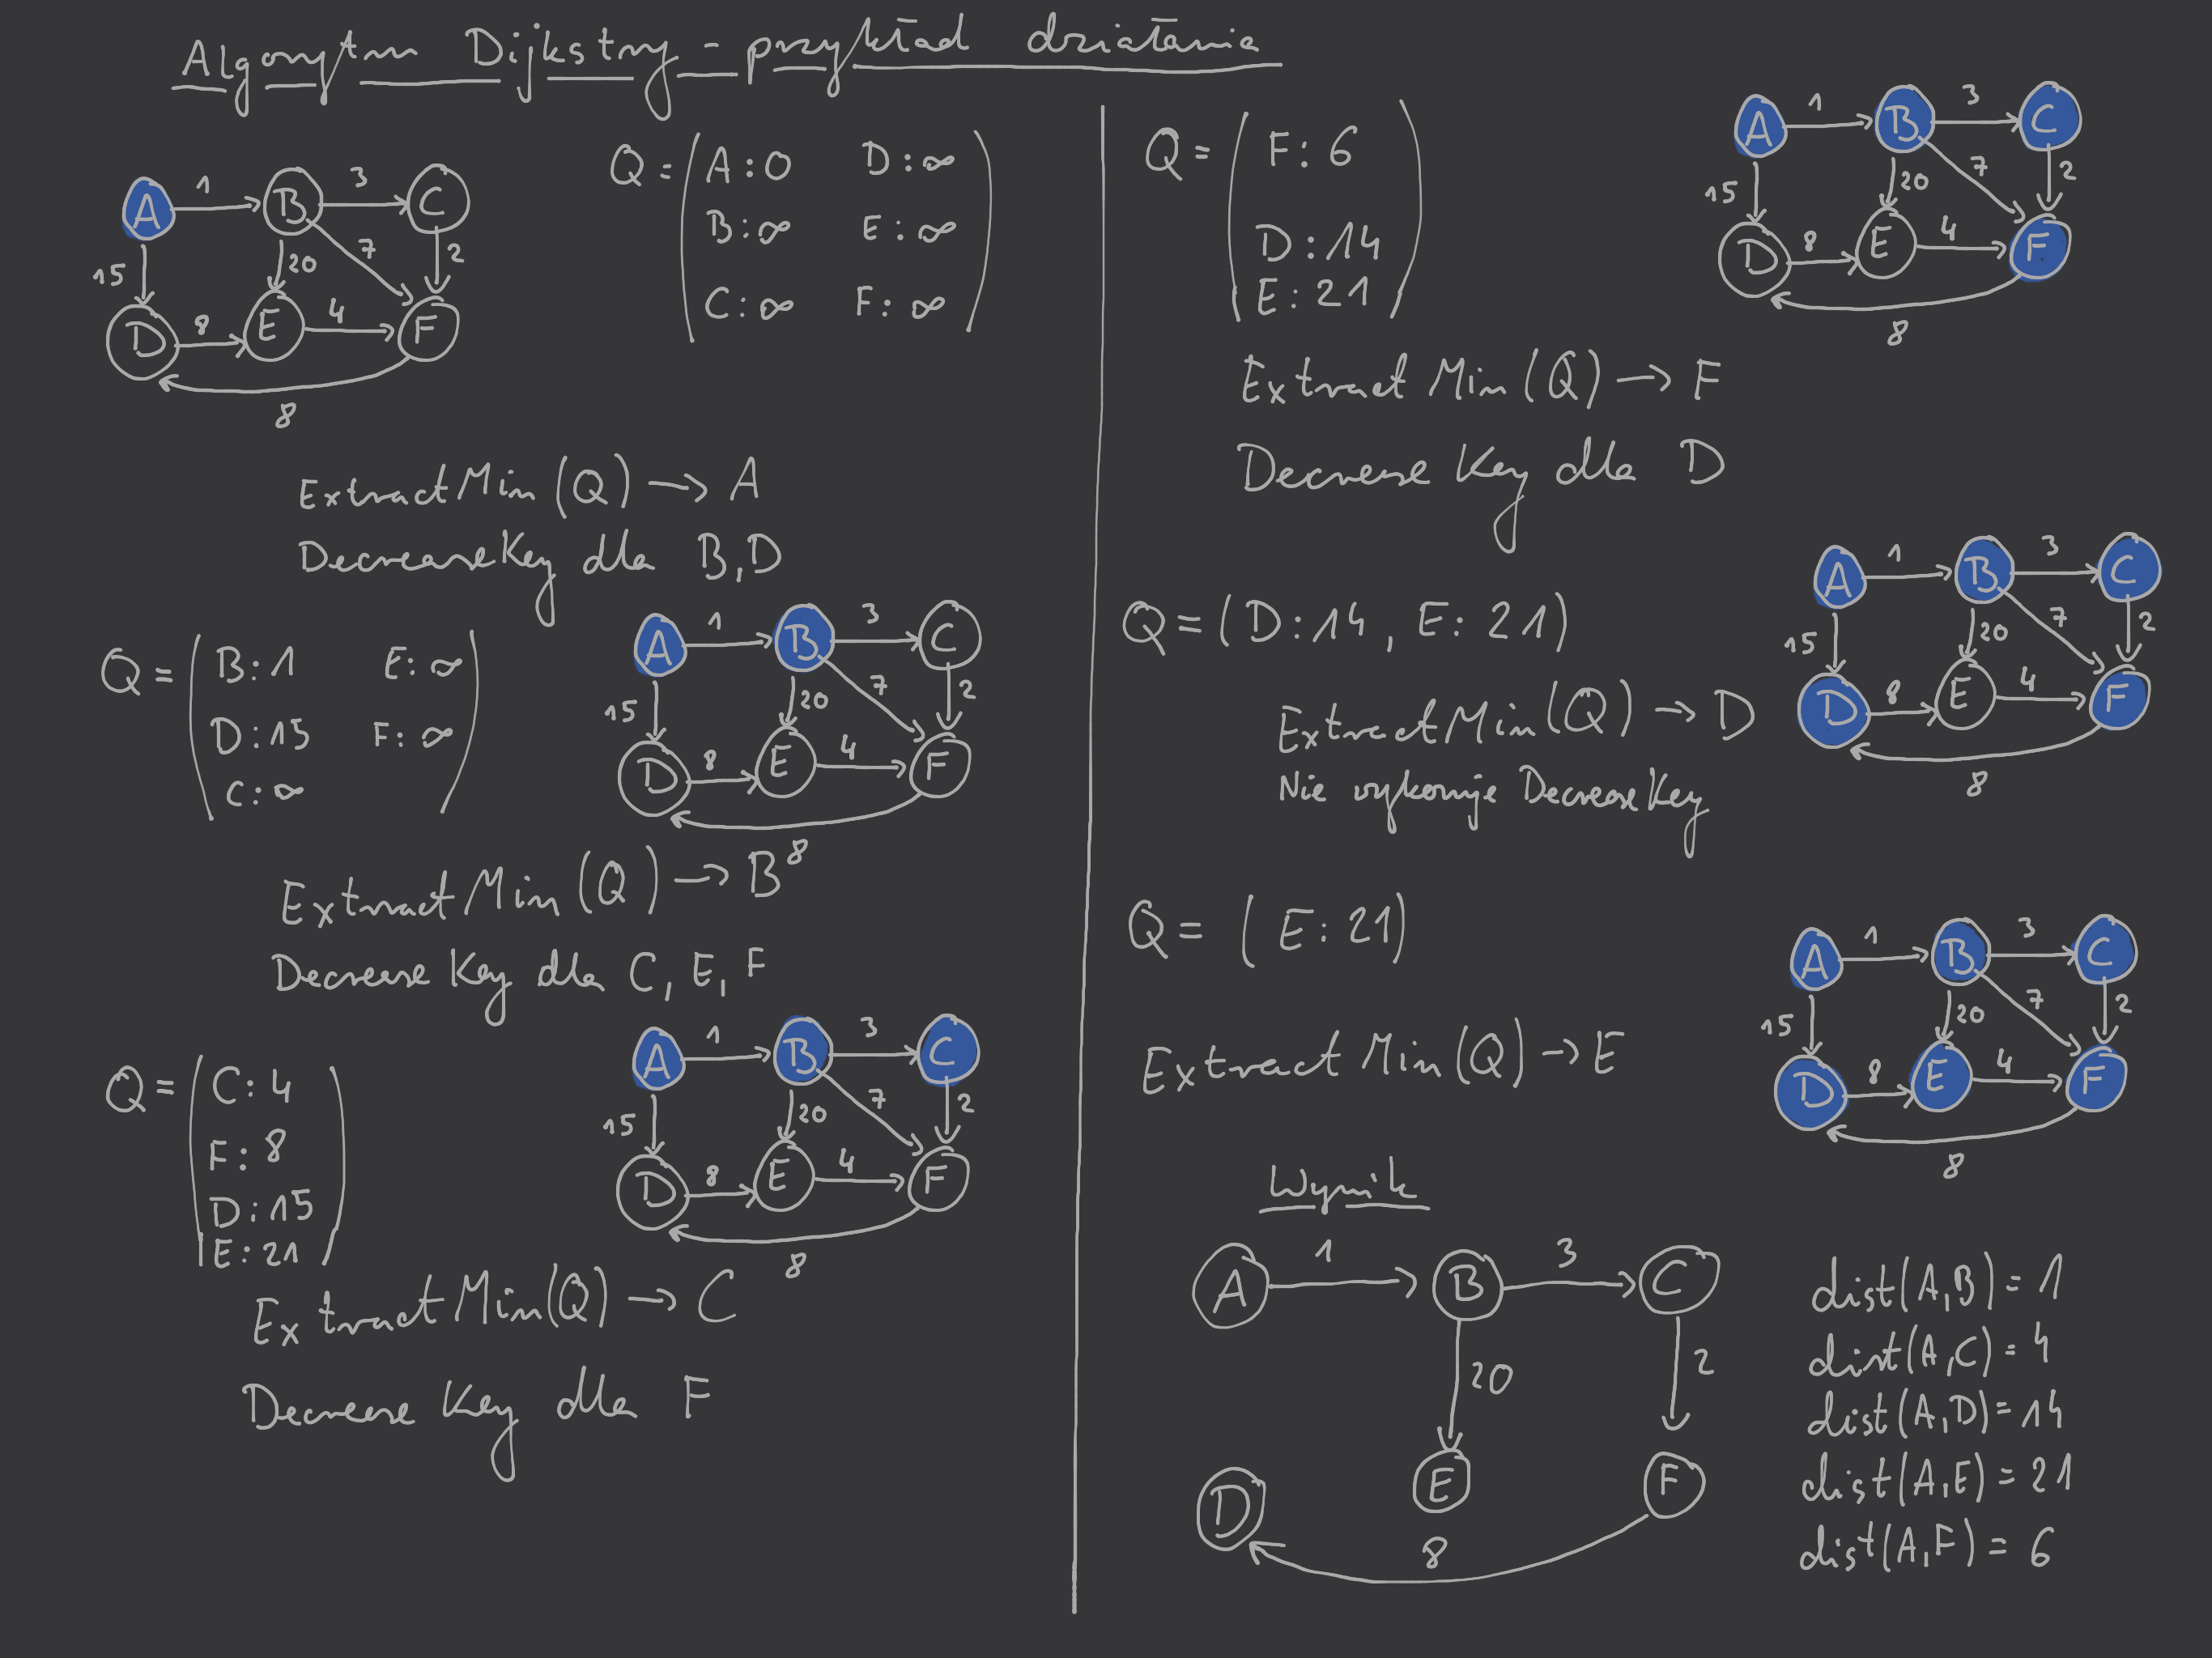 Algorytm Dijkstry - przykład działania
A 1 B 3 C
15 20 7 2
D 8 E 4 F
8
Q = ( A: 0 D: ∞
B: ∞ E: ∞
C: ∞ F: ∞ )
ExtractMin(Q) → A
DecreaseKey dla B, D
Q = ( B: 1 E: ∞
D: 15 F: ∞
C: ∞ )
A 1 B 3 C
15 20 7 2
D 8 E 4 F
8
ExtractMin(Q) → B
DecreaseKey dla C, E, F
Q = ( C: 4
F: 8
D: 15
E: 21 )
A 1 B 3 C
15 20 7 2
D 8 E 4 F
8
ExtractMin(Q) → C
DecreaseKey dla F
Q = ( F: 6
D: 14
E: 21 )
A 1 B 3 C
15 20 7 2
D 8 E 4 F
8
ExtractMin(Q) → F
DecreaseKey dla D
Q = ( D: 14, E: 21 )
A 1 B 3 C
15 20 7 2
D 8 E 4 F
8
ExtractMin(Q) → D
Nie wykonuje DecreaseKey
Q = ( E: 21 )
A 1 B 3 C
15 20 7 2
D 8 E 4 F
8
ExtractMin(Q) → E
Wynik
A 1 B 3 C
20 2
D E F
8
dist(A,B) = 1
dist(A,C) = 4
dist(A,D) = 14
dist(A,E) = 21
dist(A,F) = 6